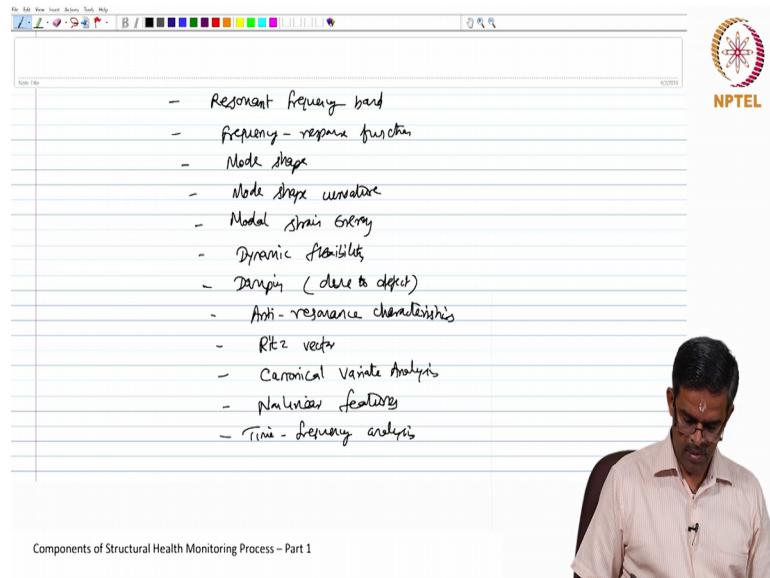 File Edit View Insert Actions Tools Help
B I
Note Title
4/2/2018
NPTEL
- Resonant frequency band
- frequency - response function
- Mode shape
- Mode shape curvature
- Modal strain Energy
- Dynamic flexibility
- Damping (due to defect)
- Anti - resonance characteristics
- Ritz vector
- Canonical Variate Analysis
- Nonlinear features
- Time - frequency analysis
Components of Structural Health Monitoring Process – Part 1